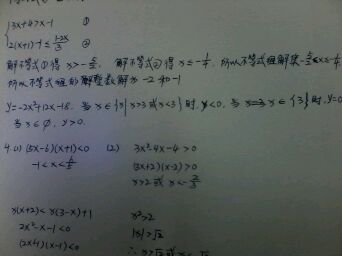 3x+4>x-1 ①
2(x+1)-1≤(1-2x)/3 ②
解不等式①得 x>-5/2, 解不等式②得 x≤-1/4, 所以不等式组解集-5/2<x≤-1/4
所以不等式组的整数解为 -2 和 -1
y=-2x²+12x-18. 当 x∈{x|x>3或x<3}时, y<0. 当 x∈{3}时, y=0
当 x∈∅, y>0.
4.(1) (5x-6)(x+1)<0 (2) 3x²-4x-4>0
-1<x<6/5 (3x+2)(x-2)>0
x>2 或 x<-2/3
x(x+2)<x(3-x)+1 x²>2
2x²-x-1<0 |x|>√2
(2x+1)(x-1)<0 ∴ x>√2 或 x<-√2